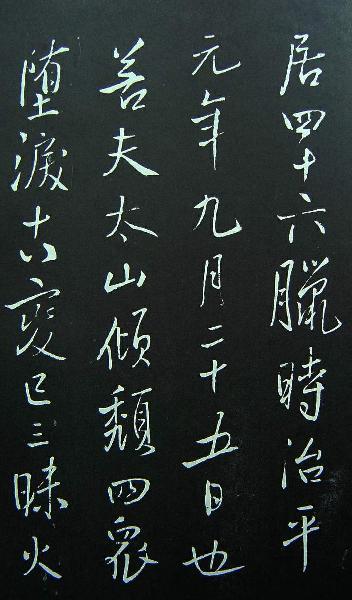 居四十六臘時治平
元年九月二十五日也
若夫太山傾頹四衆
堕淚十八變已三昧火